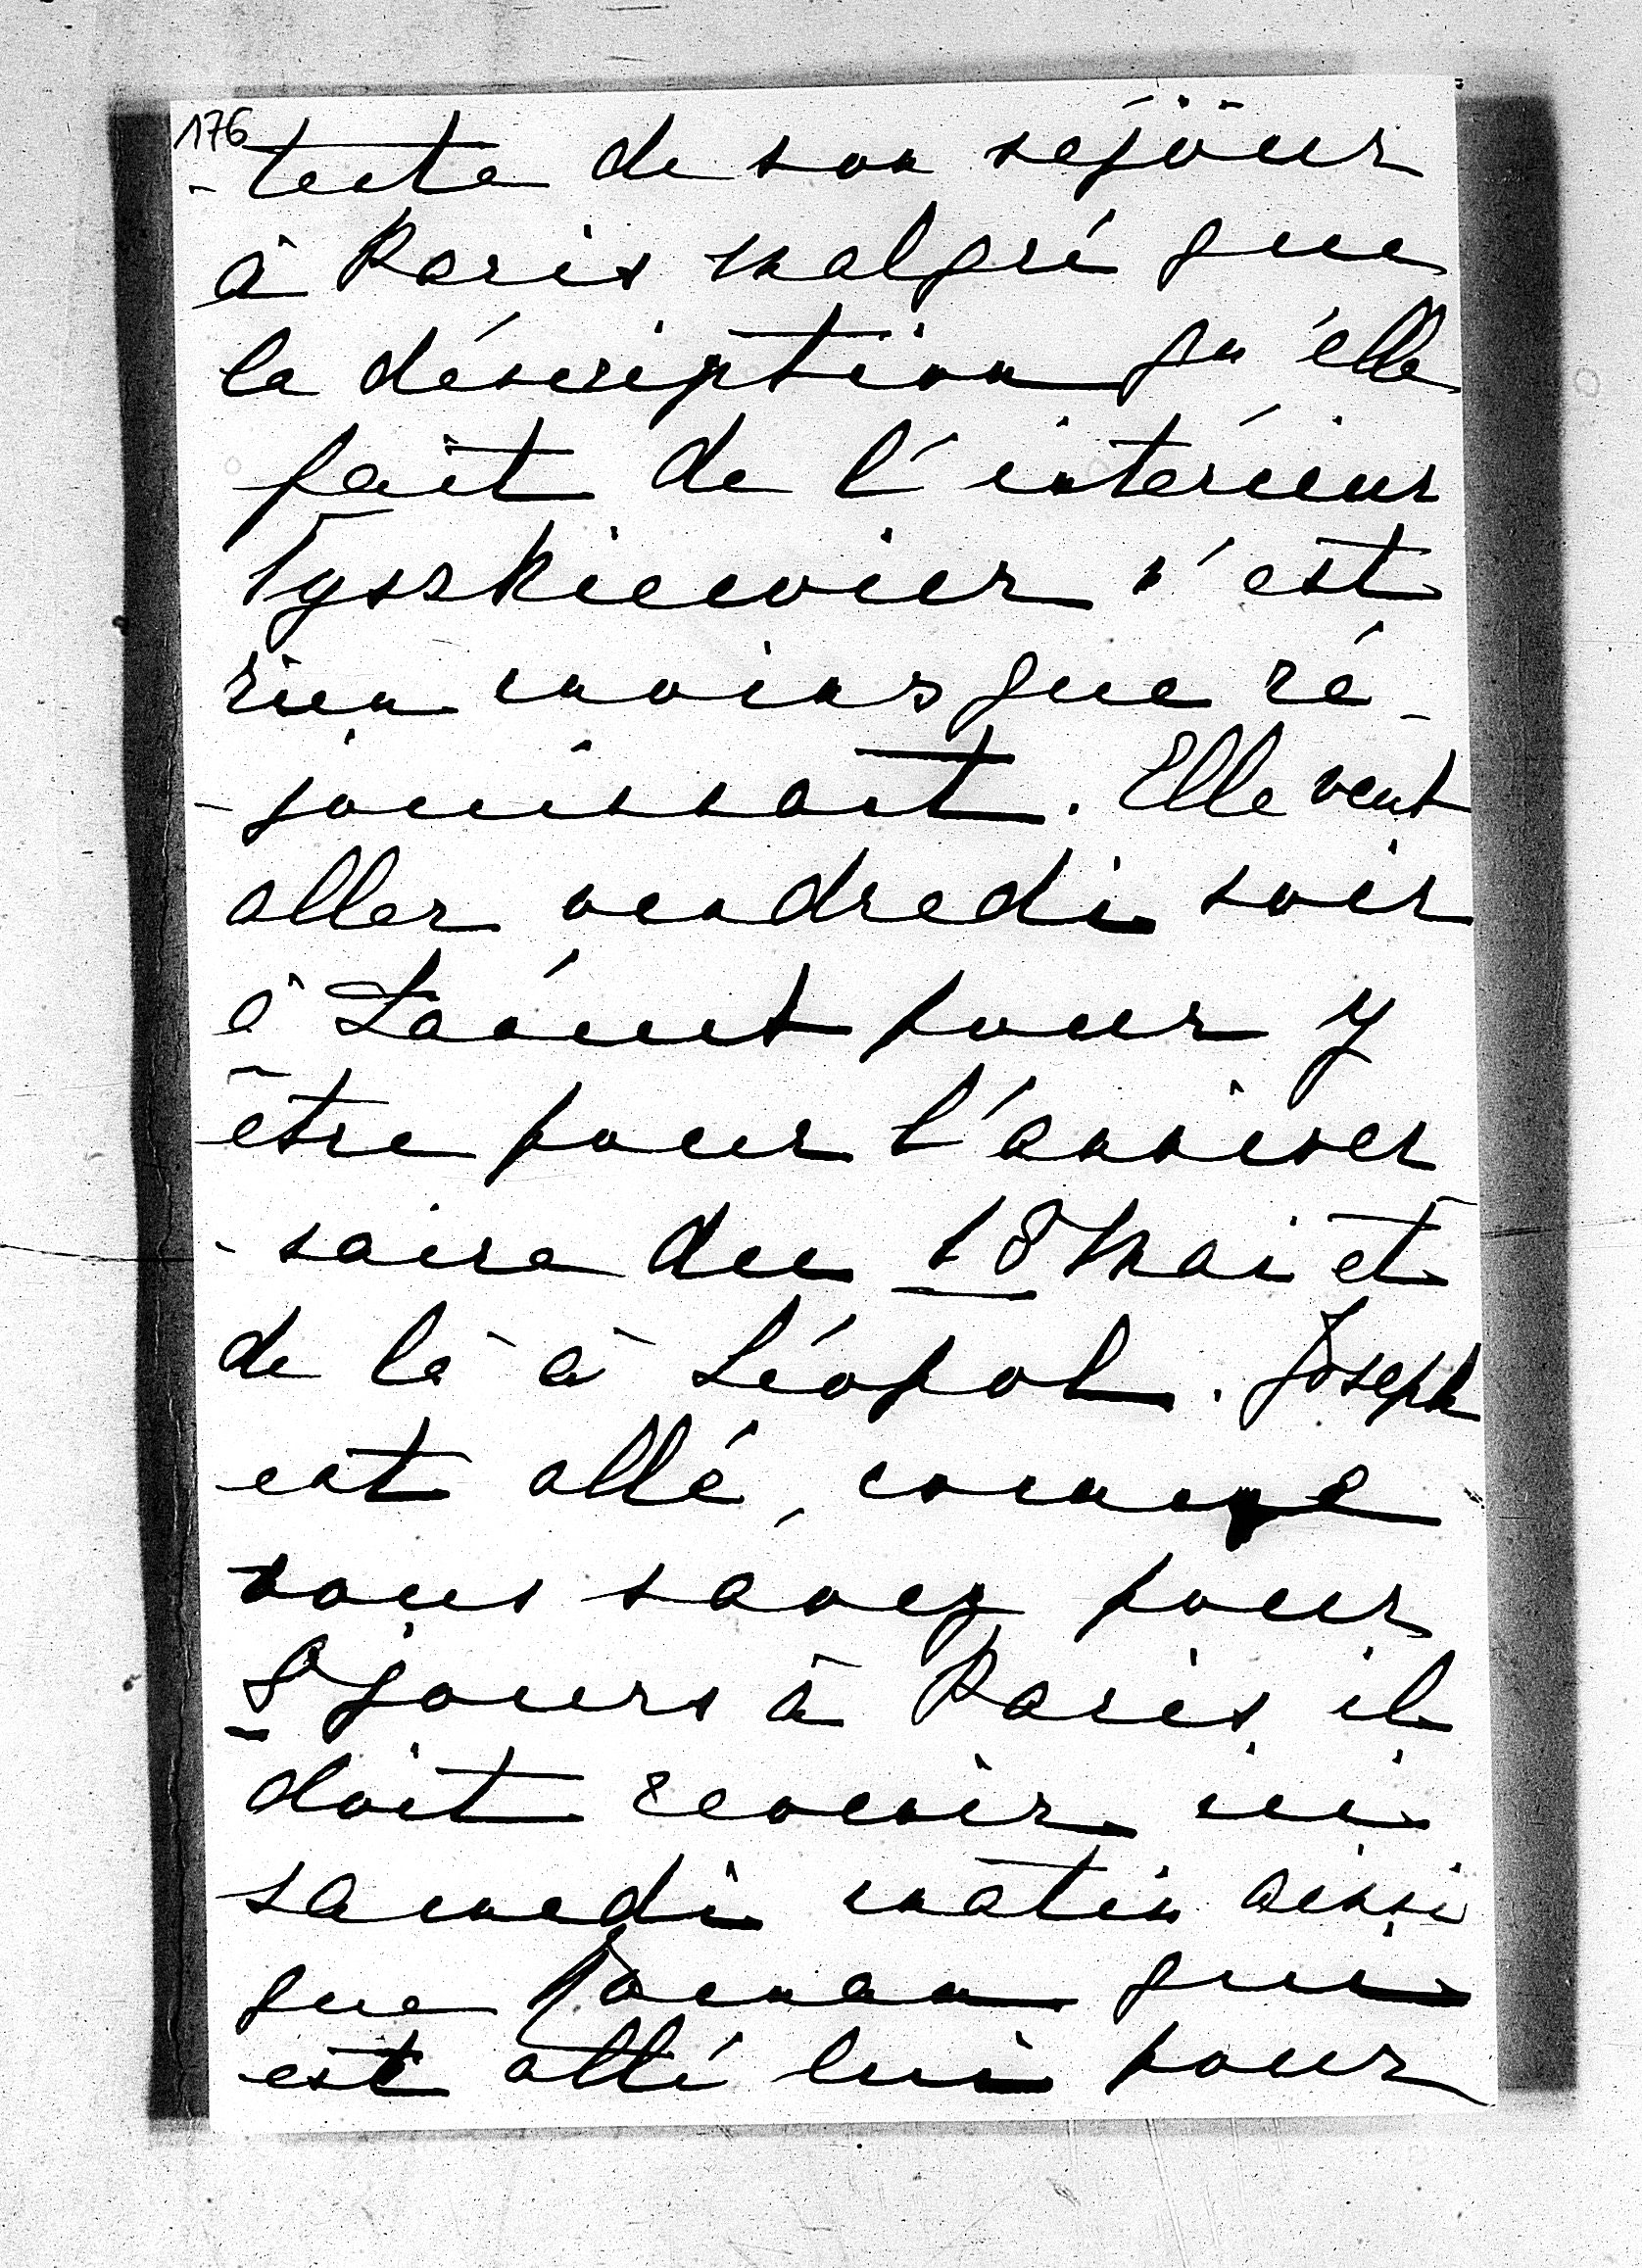 176
-tente de son séjour
à Paris malgré que
la déscription qu'elle
fait de l'intérieur
Tyszkiewicz n'est
rien moins que ré-
-jouissant. Elle veut
aller vendredi soir
à Łańcut pour y
être pour l'anniver
-saire du 18 Mai et
de là à Léopol. Joseph
est allé, comme
vous savez pour
8 jours à Paris il
doit revenir ici
samedi matin ainsi
que Roman qui
est allé lui pour